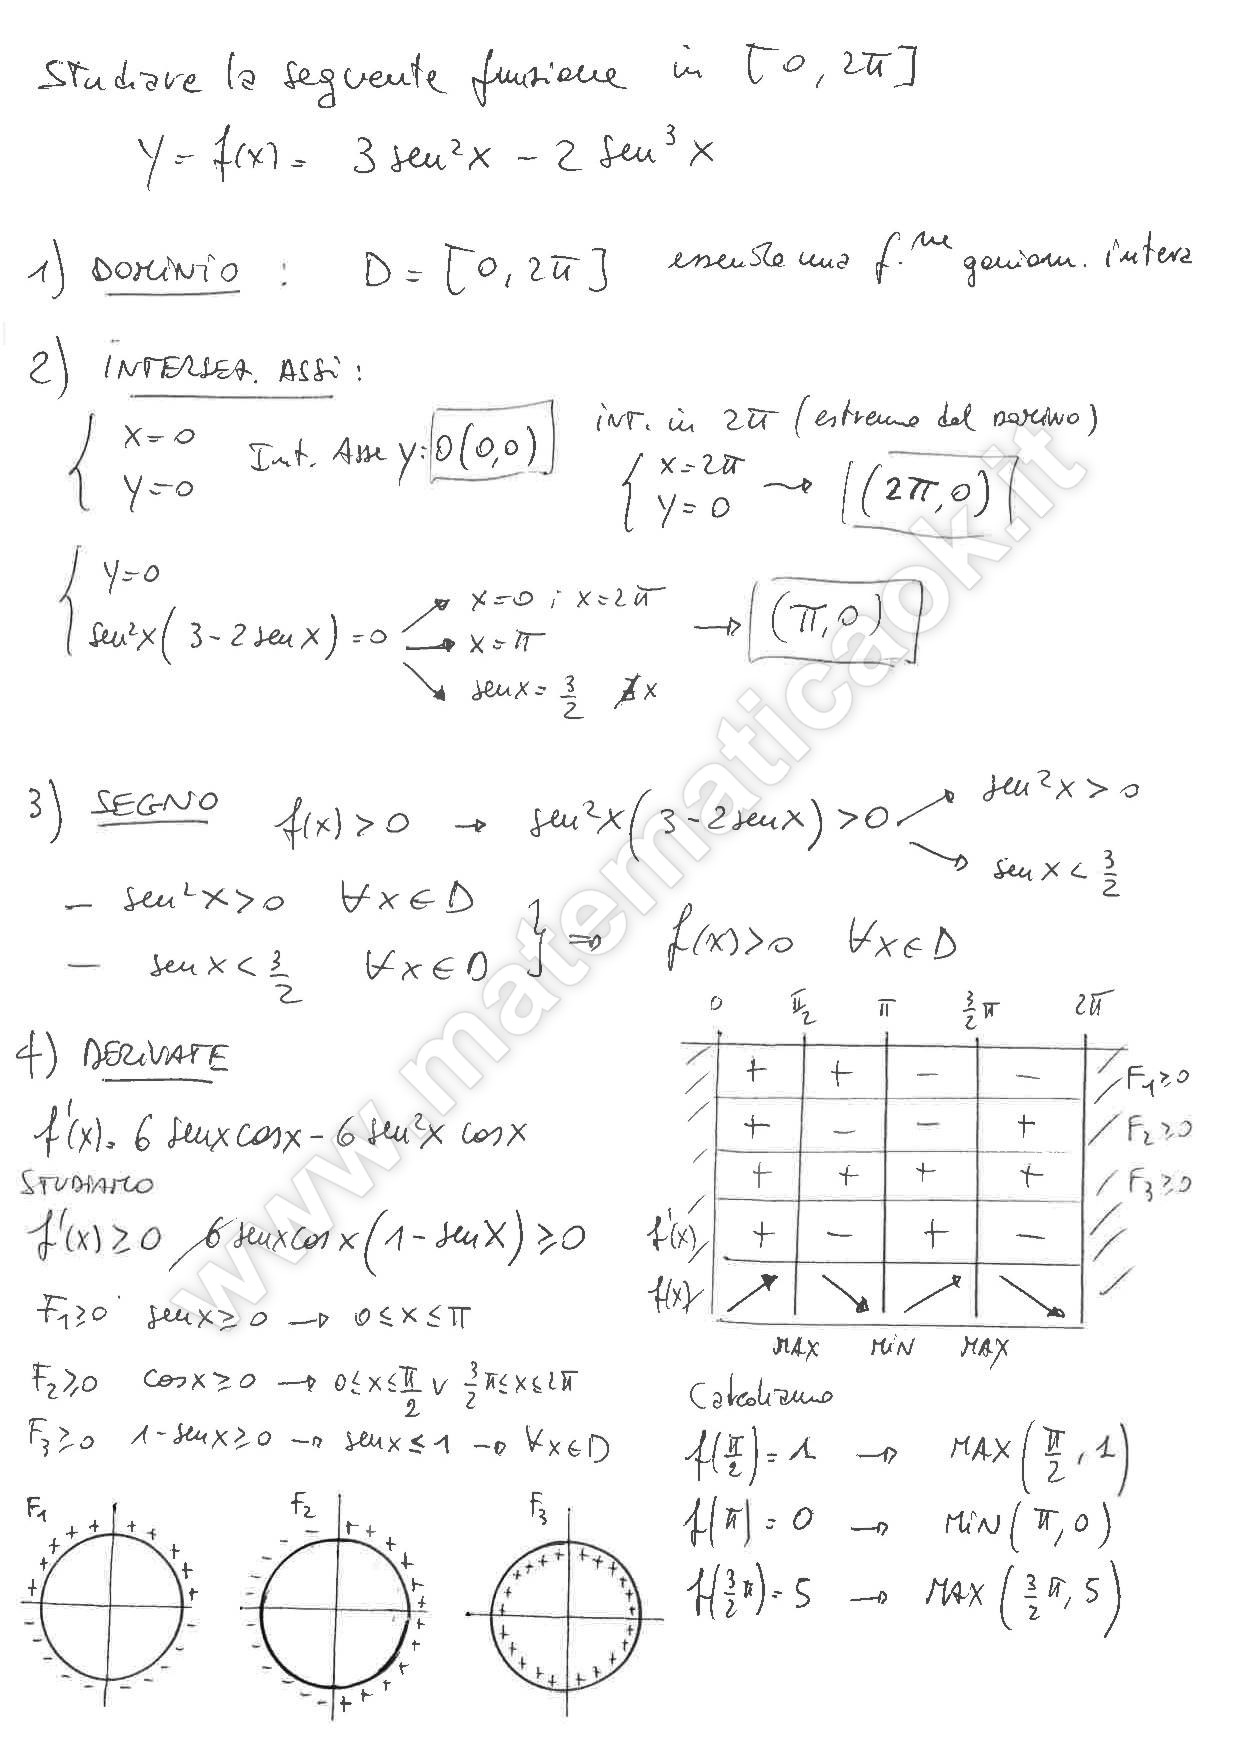 Studiare la seguente funzione in [0, 2π]
y = f(x) = 3 sen²x - 2 sen³x
1) DOMINIO : D = [0, 2π] essendo una f.ne goniom. intera
2) INTERSEZ. ASSI :
{ x=0 y=0 Int. Asse y: O(0,0)
INT. in 2π (estremo del dominio)
{ x=2π y=0 → (2π,0)
{ y=0 sen²x(3-2senx)=0
x=0 ; x=2π
x=π → (π,0)
senx=3/2 ∄x
3) SEGNO f(x)>0 → sen²x(3-2senx)>0
sen²x>0
senx<3/2
- sen²x>0 ∀x∈D
- senx<3/2 ∀x∈D } ⇒ f(x)>0 ∀x∈D
4) DERIVATE
f'(x)= 6 senxcosx - 6 sen²x cosx
STUDIAMO
f'(x)≥0 6 senxcosx(1-senx)≥0
F1≥0 senx≥0 → 0≤x≤π
F2≥0 cosx≥0 → 0≤x≤π/2 ∨ 3/2π≤x≤2π
F3≥0 1-senx≥0 → senx≤1 → ∀x∈D
F1 F2 F3
0 π/2 π 3/2π 2π
+ + - - F1≥0
+ - - + F2≥0
+ + + + F3≥0
f'(x) + - + -
f(x) ↗ ↘ ↗ ↘
MAX MIN MAX
Calcoliamo
f(π/2)=1 → MAX(π/2, 1)
f(π)=0 → MIN(π,0)
f(3/2π)=5 → MAX(3/2π,5)
www.matematicaok.it